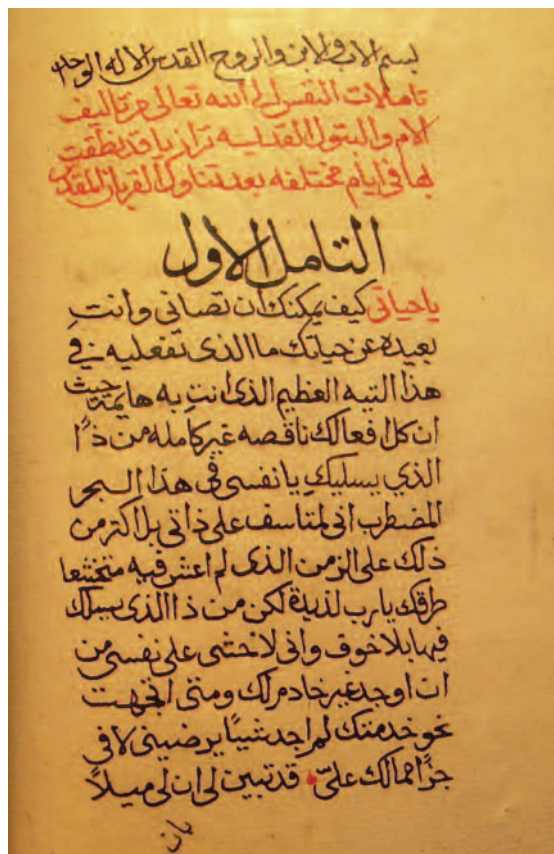 بسم الاب والابن والروح القدس الاله الواحد
تاملات النفس الى الله تعالى من تاليف
الام والبتول القديسه ترازيا قد نطقت
بها فى ايام مختلفه بعد تناول القربان المقدس
التامل الاول
ياحياتى كيف يمكنك ان تصانى وانتِ
بعيده عن حياتك ما الذى تفعليه في
هذا التيه العظيم الذى انتِ به هايمة حيث
ان كل افعالك ناقصه غير كامله من ذا
الذي يسليكِ يا نفسى فى هذا البحر
المضطرب انى لمتاسف على ذاتى بل اكتر من
ذلك على الزمن الذى لم اعش فيه متخشعا
طرقك يارب لذيذة لكن من ذا الذى يسلك
فيها بلا خوف وانى لاخشى على نفسى من
ان اوجد غير خادم لك ومتى اتجهت
نحو خدمتك لم اجد شيئًا يرضينى لافى
جزًا مما لك علىّ قد تبين لى ان لى ميلاً
بان